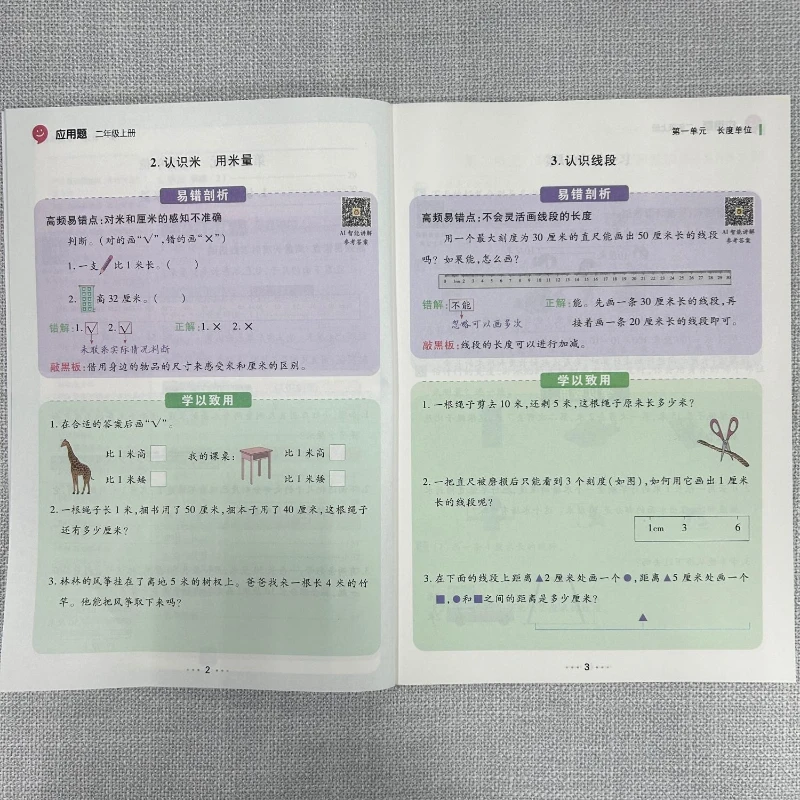 应用题 二年级上册
2. 认识米 用米量
易错剖析
高频易错点:对米和厘米的感知不准确
AI 智能讲解
参考答案
判断。(对的画“√”,错的画“×”)
1. 一支 比 1 米长。( )
2. 高 32 厘米。( )
错解:1. √ 2. √ 正解:1. × 2. ×
未联系实际情况判断
敲黑板:借用身边的物品的尺寸来感受米和厘米的区别。
学以致用
1. 在合适的答案后画“√”。
比 1 米高 我的课桌: 比 1 米高
比 1 米矮 比 1 米矮
2. 一根绳子长 1 米,捆书用了 50 厘米,捆本子用了 40 厘米,这根绳子
还有多少厘米?
3. 林林的风筝挂在了离地 5 米的树杈上。爸爸找来一根长 4 米的竹
竿。他能把风筝取下来吗?
2
第一单元 长度单位
3. 认识线段
易错剖析
高频易错点:不会灵活画线段的长度
AI 智能讲解
参考答案
用一个最大刻度为 30 厘米的直尺能画出 50 厘米长的线段
吗?如果能,怎么画?
0 1cm 2 3 4 5 6 7 8 9 10 11 12 13 14 15 16 17 18 19 20 21 22 23 24 25 26 27 28 29 30
错解:不能 正解:能。先画一条 30 厘米长的线段,再
忽略可以画多次 接着画一条 20 厘米长的线段即可。
敲黑板:线段的长度可以进行加减。
学以致用
1. 一根绳子剪去 10 米,还剩 5 米,这根绳子原来长多少米?
2. 一把直尺被磨损后只能看到 3 个刻度(如图),如何用它画出 1 厘米
长的线段呢?
1cm 3 6
3. 在下面的线段上距离▲2 厘米处画一个●,距离▲5 厘米处画一个
■,●和■之间的距离是多少厘米?
3